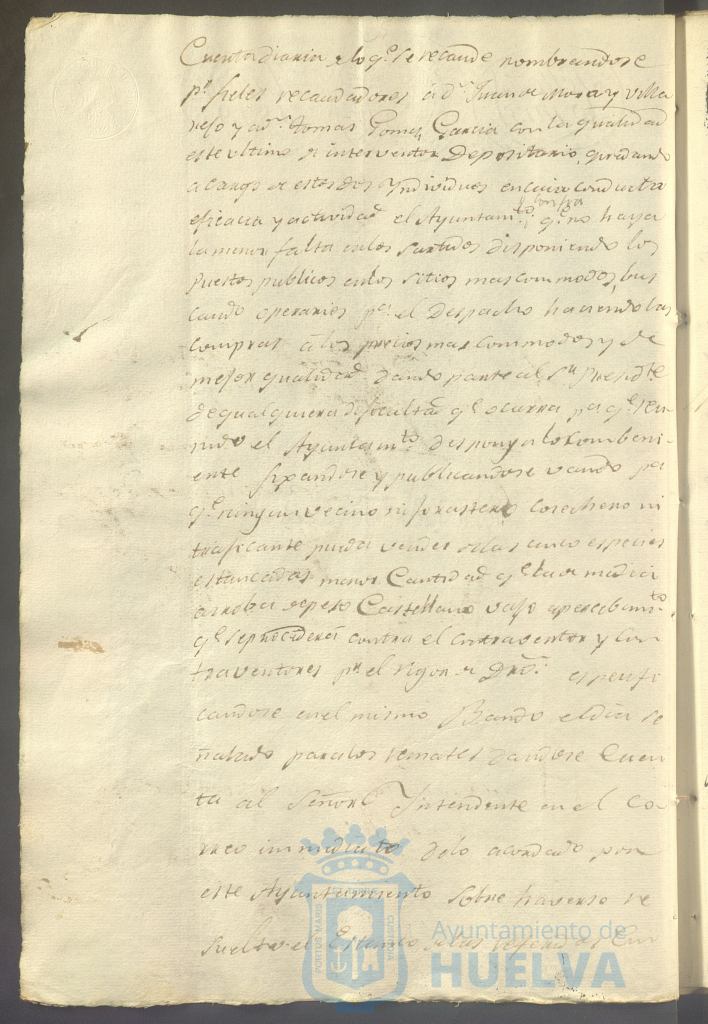 Cuenta diaria de lo q.e se recaude nombrandose
p.r fieles recaudadores a d.n Juan de Mora y Villa
rejo y a d.n tomas Gomez Garcia con la qualidad
este ultimo de interventor Depositario, quedando
a cargo de estos dos Yndividuos en cuia conducta
eficacia y actividad el Ayuntam.to confia q.e no haya
la menor falta en los surtidos disponiendo los
puestos publicos en los sitios mas commodos, bus
cando operarios p.a el Despacho haciendo las
compras a los precios mas commodos y de
mejor qualidad dando parte al S.r Presid.te
de qualquiera dificultad q.e ocurra p.a q.e
el Ayuntam.to desponga lo combeni-
ente fixandose y publicandose vando p.a
q.e ningun vecino ni forastero Cosechero ni
traficante pueda vender de las cinco especies
estancadas menor Cantidad q.e la de media
arroba de peso Castellano vajo apercebim.to
q.e se procederá contra el contraventor y con
traventores p.r el rigor de Dro. especifi
candose en el mismo Bando el dia se
ñalado para los remates dandose Cuen
ta al Señor Yntendente en el Co-
rreo inmediato de lo acordado por
este Ayuntamiento sobre haverse re
suelto el Estanco de las
PORTUS MARIS ET TERRAE CUSTODIA
Ayuntamiento de
HUELVA